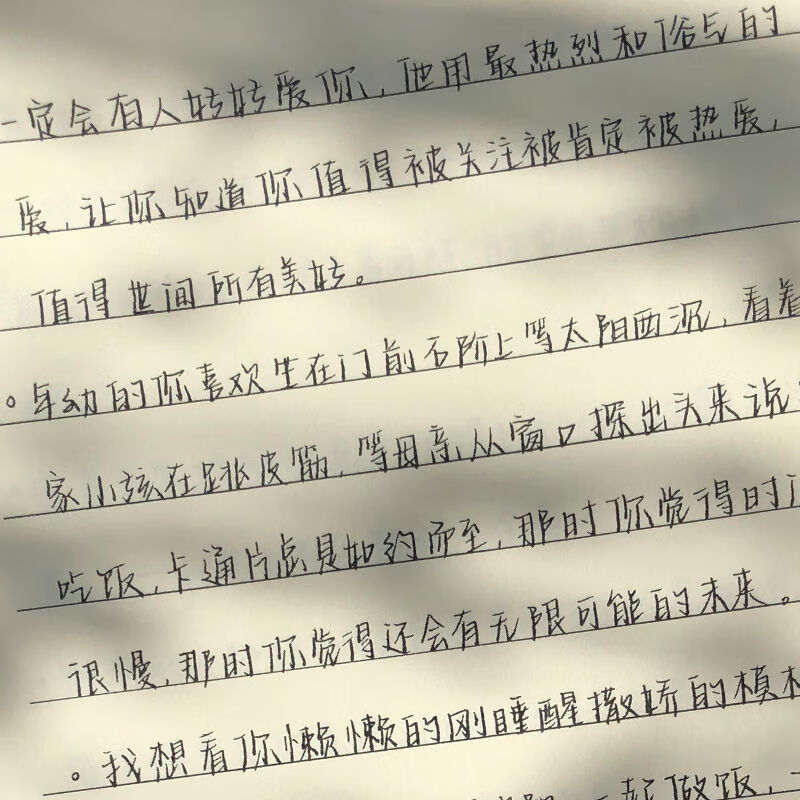 一定会有人好好爱你,他用最热烈和俗气的
爱,让你知道你值得被关注被肯定被热爱,
值得世间所有美好。
。年幼的你喜欢坐在门前石阶上等太阳西沉,看着
家小孩在跳皮筋,等母亲从窗口探出头来说
吃饭,卡通片总是如约而至,那时你觉得时
很慢,那时你觉得还会有无限可能的未来。
。我想看你懒懒的刚睡醒撒娇的模
起做饭,